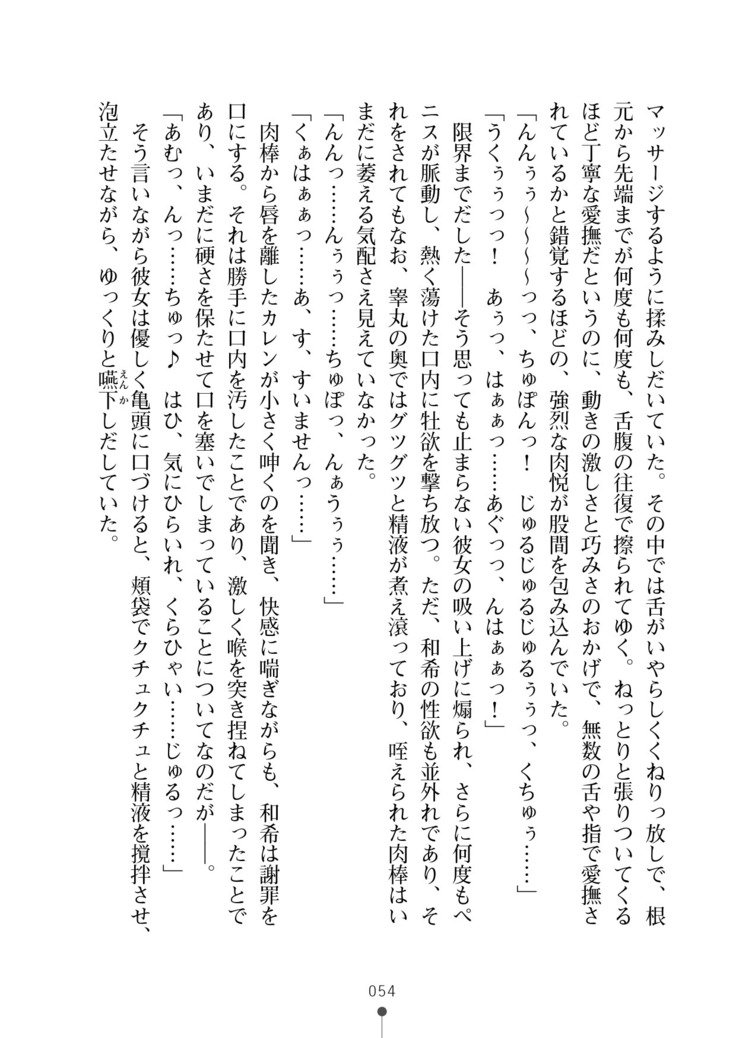 マッサージするように揉みしだいていた。その中では舌がいやらしくくねりっ放しで、根
元から先端までが何度も何度も、舌腹の往復で擦られてゆく。ねっとりと張りついてくる
ほど丁寧な愛撫だというのに、動きの激しさと巧みさのおかげで、無数の舌や指で愛撫さ
れているかと錯覚するほどの、強烈な肉悦が股間を包み込んでいた。
「んんぅぅ～～～～っっ、ちゅぽんっ！　じゅるじゅるじゅるぅぅっ、くちゅぅ……」
「うくぅぅっっ！　あぅっ、はぁぁっ……あぐっっ、んはぁぁっ！」
　限界までだした――そう思っても止まらない彼女の吸い上げに煽られ、さらに何度もペ
ニスが脈動し、熱く蕩けた口内に牡欲を撃ち放つ。ただ、和希の性欲も並外れであり、そ
れをされてもなお、睾丸の奥ではグツグツと精液が煮え滾っており、咥えられた肉棒はい
まだに萎える気配さえ見えていなかった。
「んんっ……んぅぅっ……ちゅぽっ、んぁうぅぅ……」
「くぁはぁぁっ……あ、す、すいませんっ……」
　肉棒から唇を離したカレンが小さく呻くのを聞き、快感に喘ぎながらも、和希は謝罪を
口にする。それは勝手に口内を汚したことであり、激しく喉を突き捏ねてしまったことで
あり、いまだに硬さを保たせて口を塞いでしまっていることについてなのだが――。
「あむっ、んっ……ちゅっ♪　はひ、気にひらいれ、くらひゃい……じゅるっ……」
　そう言いながら彼女は優しく亀頭に口づけると、頬袋でクチュクチュと精液を撹拌させ、
泡立たせながら、ゆっくりと嚥下しだしていた。
えんか
054